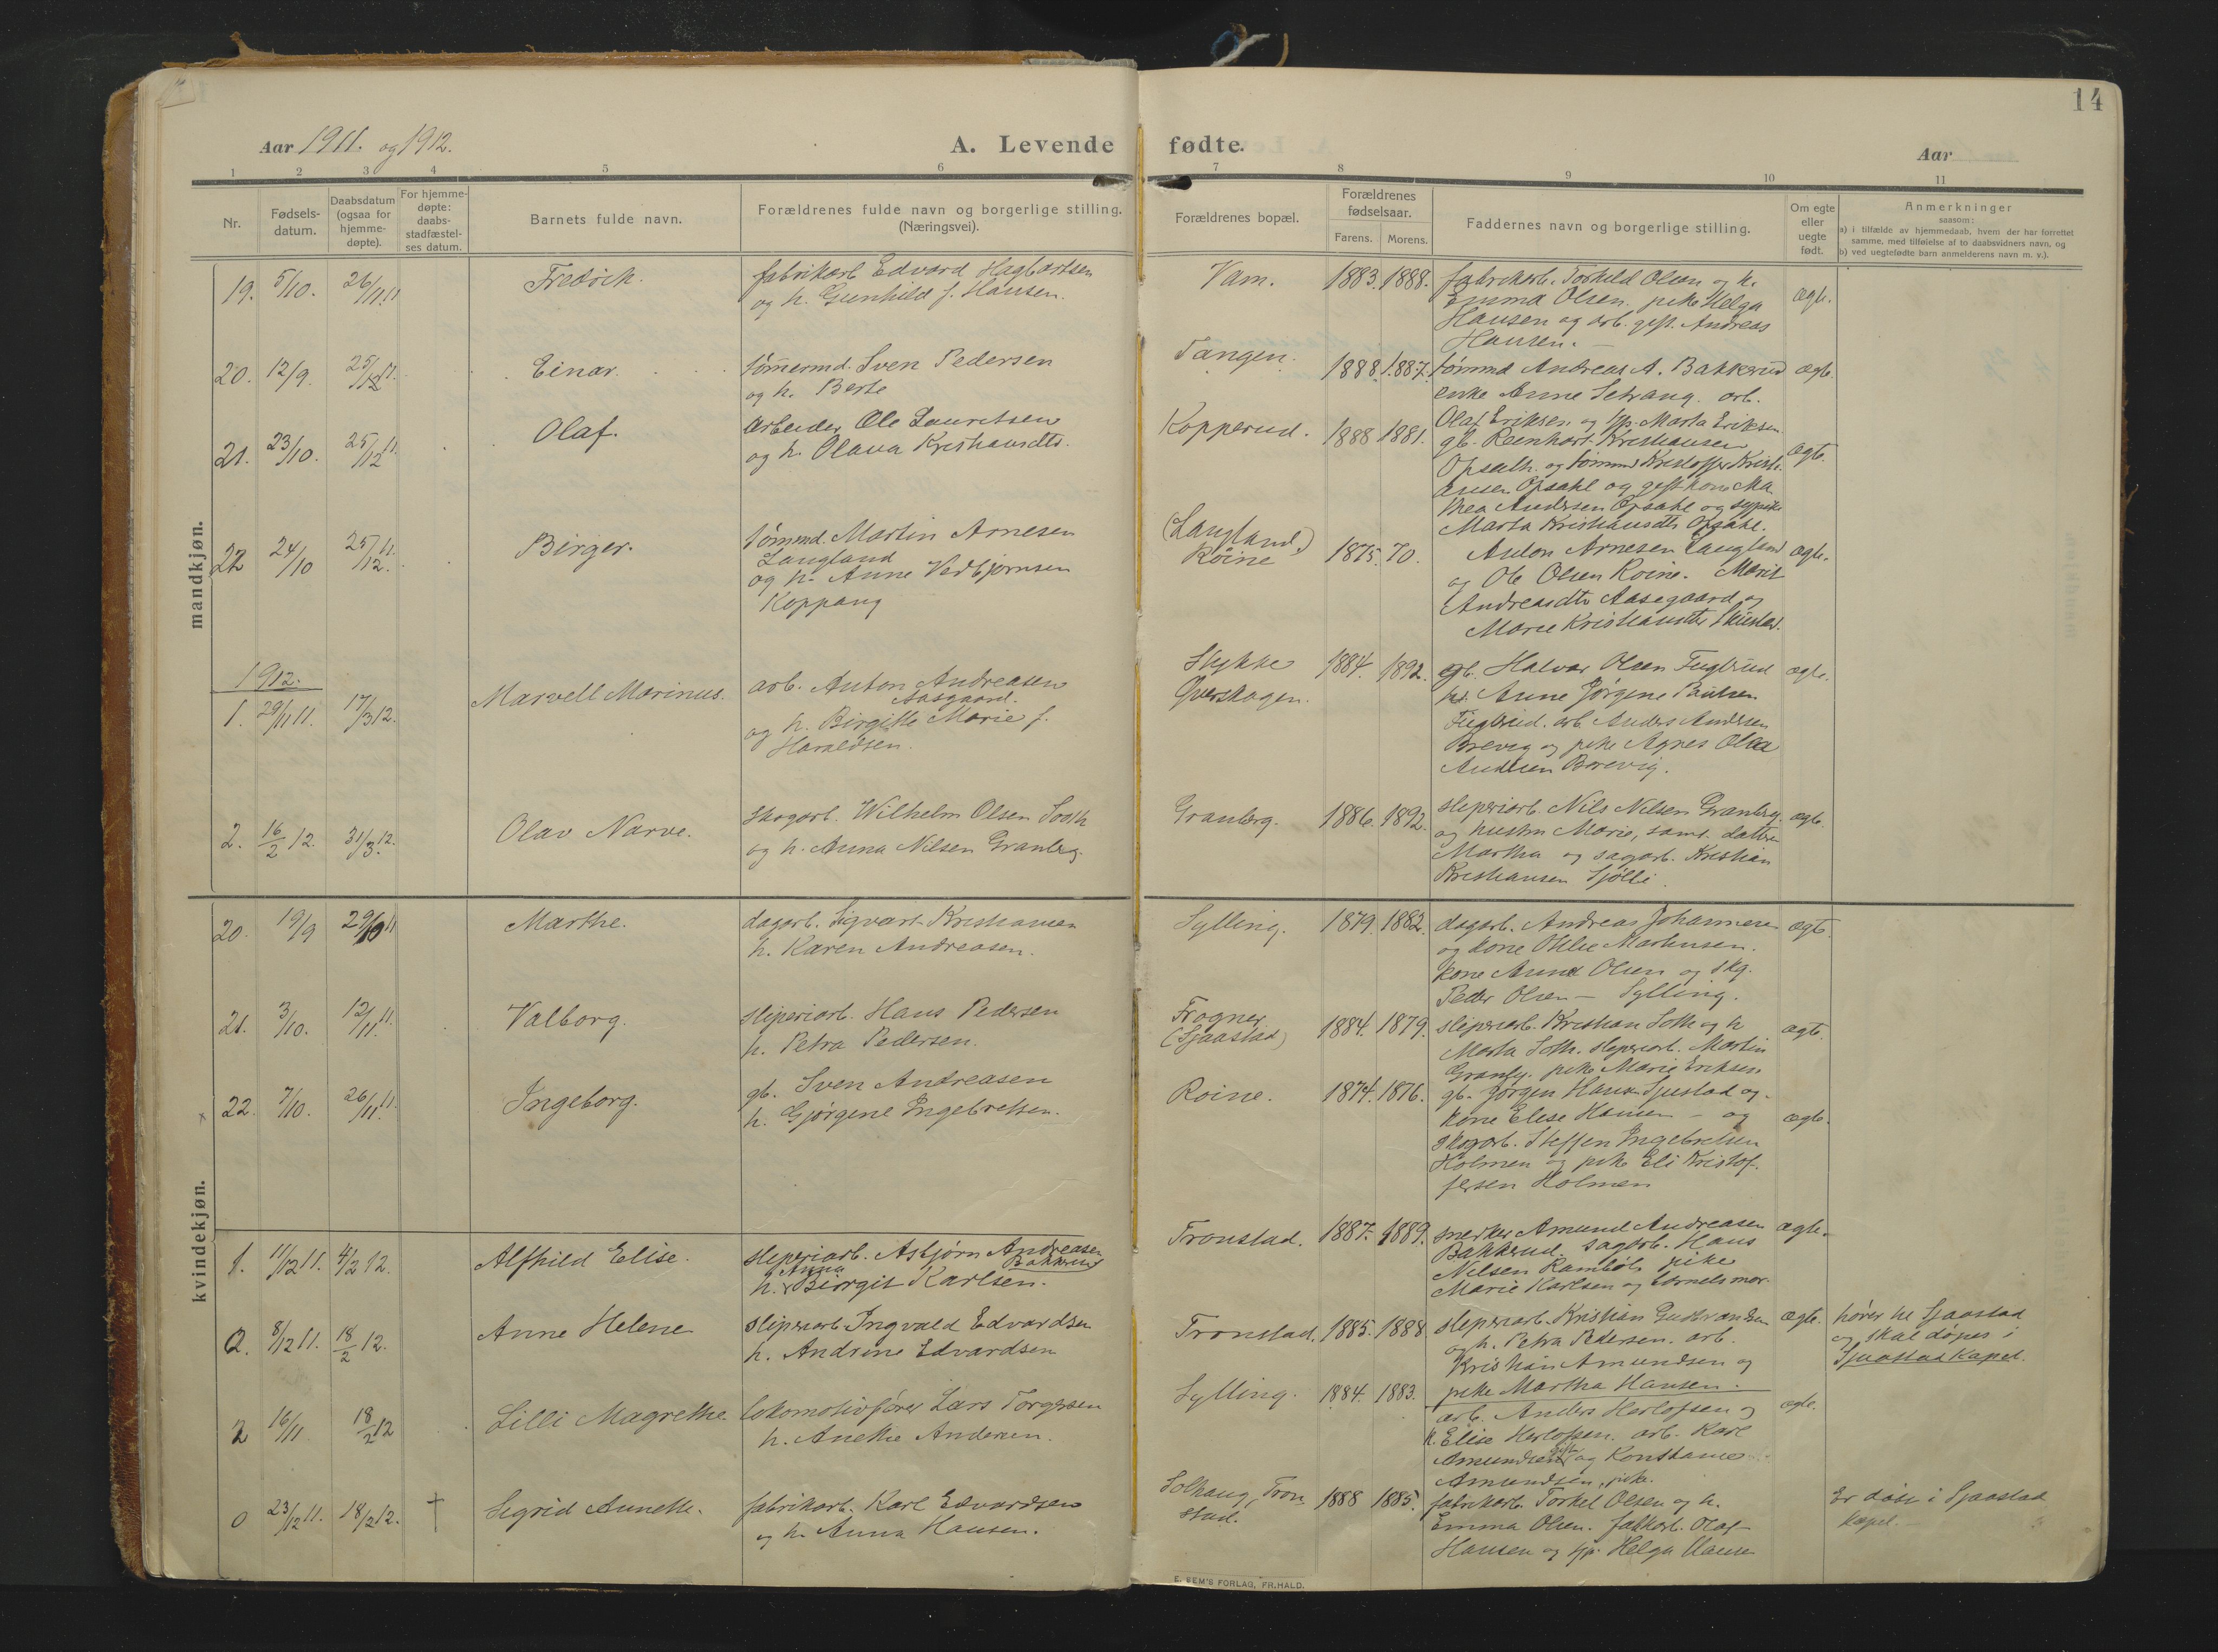 14
Aar 1911. og 1912.
A. Levende fødte.
Aar
1 2 3 4 5 6 7 8 9 10 11
Nr.
Fødsels-
datum.
Daabsdatum
(ogsaa for
hjemme-
døpte).
For hjemme-
døpte:
daabs-
stadfæstel-
ses datum.
Barnets fulde navn.
Forældrenes fulde navn og borgerlige stilling.
(Næringsvei).
Forældrenes bopæl.
Forældrenes
fødselsaar.
Farens. Morens.
Faddernes navn og borgerlige stilling.
Om egte
eller
uegte
født.
Anmerkninger
saasom:
a) i tilfælde av hjemmedaab, hvem der har forrettet
samme, med tilføielse af to daabsvidners navn, og
b) ved uegtefødte barn anmelderens navn m. v.).
mandkjøn.
19. 5/10. 26/11.11 Fredrik.
fabrikarb Edvard Hagbartsen
og h. Gunhild f. Hansen.
Vam. 1883. 1888.
fabrikarb. Torkild Olsen og h.
Emma Olsen. pike Helga
Hansen og arb. gift. Andreas
Hansen.
ægte.
20. 12/9. 25/12 11. Einar.
tømermd. Sven Pedersen
og h. Berte
Tangen. 1888. 1887.
tømmd Andreas A. Bakkerud
enke Anne Setrang. arb.
Olaf Eriksen og Marta Eriksen
ægte
21. 23/10. 25/12 11. Olaf.
Arbeider Ole Lauritsen
og h. Olava Kristiansdtr.
Kopperud. 1888 1881.
gb. Reenhart Kristiansen
Opsahl. og tømmd Kristoffer Kristi-
ansen Opsahl og gift kone Ma
thea Andersen Opsahl og sypike
Marta Kristiansdtr Opsahl.
ægte.
22 24/10 25/12 11. Birger.
tømmd. Martin Arnesen
Laugland
og h. Anne Vedbjørnsen
Koppang
(Laugland)
Roine 1875. 70.
Anton Arnesen Laugland
og Ole Olsen Roine. Marit
Andreasdtr Aasegaard og
Marie Kristiansdtr
ægte.
1912.
1. 29/11 11. 17/3 12. Marvell Marinus.
arb. Anton Andreasen
Aasgaard.
og h. Birgitte Marie f.
Haraldsen.
Stykke
Øverskogen. 1884. 1892.
gb. Halvor Olsen Fuglerud
h. Anne Jørgene Paulsen
Fuglerud. arb Anders Andersen
Brevig og pike Agnes Olea
Andersen Borevig.
ægte.
2. 16/2 12. 31/3 12. Olav Narve.
skogarb. Wilhelm Olsen Soth
og h. Anna Nilsen Granberg.
Granberg. 1886. 1892.
sliperiarb. Nils Nilsen Granberg.
og hustru Marie, samt datter
Martha og sagarb. Kristian
Kristiansen Sjølli.
ægte
kvindekjøn.
20. 19/9 29/10 11 Marthe.
dagarb. Sigvart Kristiansen
h. Karen Andreasen.
Sylling. 1879. 1882.
dagarb. Andreas Johannesen
og kone Martinsen.
kone Anna Olsen og skg.
Peder Olsen — Sylling.
ægte.
21. 3/10. 12/11 11. Valborg.
sliperiarb. Hans Pedersen
h. Petra Pedersen.
Frogner
(Sjaastad) 1884. 1879.
sliperiarb. Kristian Soth og h
Marta Soth. sliperiarb. Martin
Granbg. pike Marie Eriksen
ægte.
22. 7/10. 26/11 11. Ingeborg.
gb. Sven Andreasen
h. Gjørgene Ingebretsen.
Roine. 1874. 1876.
gb. Jørgen Hansen Sjustad og
kone Elise Hansen — og
skogarb. Steffen Ingebretsen
Holmen og pike Eli Kristof-
fersen Holmen
ægte.
1. 11/12 11. 4/2 12. Alfhild Elise.
sliperiarb. Asbjørn Andreasen
Bakkerud
h. Anna Birgit Karlsen.
Tronstad. 1887. 1889.
snedker Amund Andreasen
Bakkerud. sagarb. Hans
Nilsen Rambøl. pike
Marie Karlsen og barnets mor.
ægte.
0. 8/12 11. 18/2 12. Anne Helene
sliperiarb. Ingvald Edvardsen
h. Andrine Edvardsen
Tronstad. 1885. 1888
sliperiarb. Kristian Gudbrandsen
og h. Petra Pedersen. arb.
Kristian Amundsen og
pike Martha Hansen.
ægte.
hører til Sjaastad
og skal døpes i
Sjaastad Kapel.
2 16/11 18/2 12 Lilli Magrethe
lokomotivfører Lars Torgersen
h. Anethe Andersen.
Sylling. 1884. 1883.
arb. Anders Herlofsen og
h. Elise Herlofsen. arb. Karl
Amundsen og Konstance
Amundsen, pike.
ægte.
0 23/12 11. 18/2 12. † Sigrid Annette.
fabrikarb. Karl Edvardsen
og h. Anna Hansen.
Solhaug, Tron
stad. 1888 1885.
fabrikarb. Torkel Olsen og h.
Emma Olsen. fabkarb. Olaf
Hansen og Helga Hansen
Er døbt i Sjaastad
kapel.
E. SEM'S FORLAG, FR.HALD.